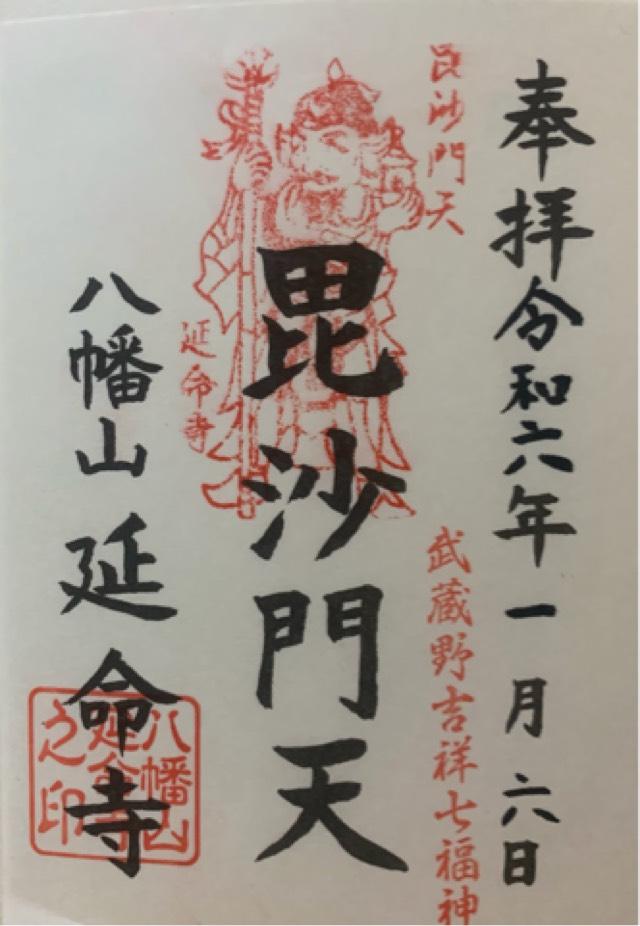 奉拝令和六年一月六日
武蔵野吉祥七福神
毘沙門天
毘沙門天
延命寺
八幡山延命寺
八幡山
延命寺
之印